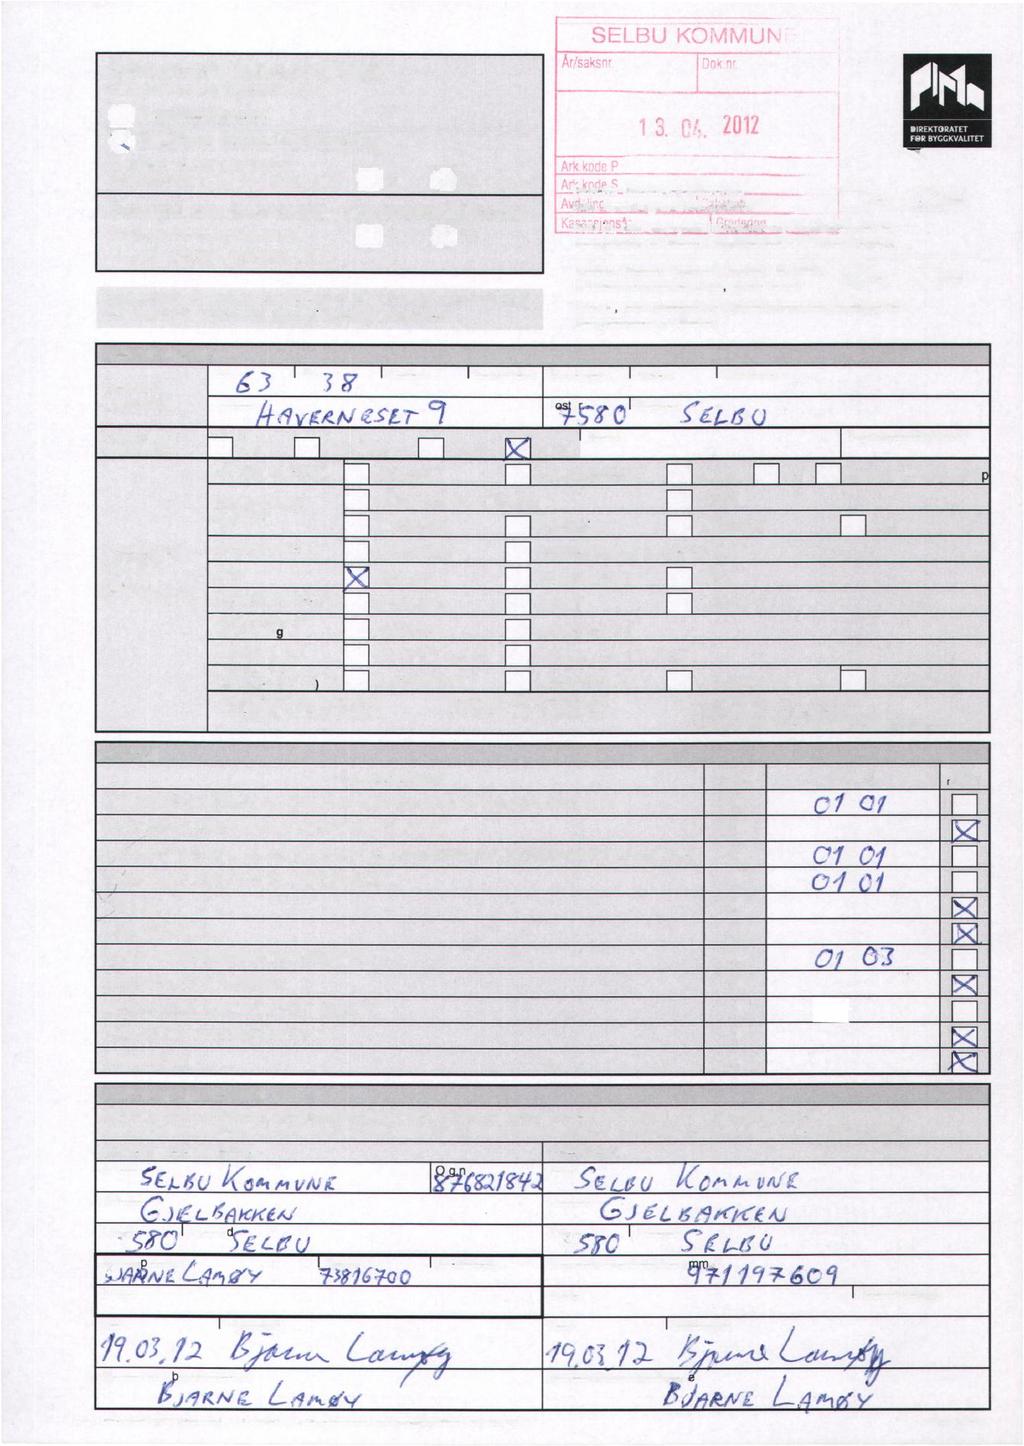 SELBU KOMMUN
År/saksnr. Dok.nr.
13. 04. 2012
Ark.kode P
Ark.kode S
DIREKTORATET
FOR BYGGKVALITET
63 38
HAVERNESET 9 7580 SELBU
p
g
)
r
01 01
01 01
01 01
01 03
SELBU KOMMUNE 876821842 SELBU KOMMUNE
GJELBAKKEN GJELBAKKEN
580 SELBU 580 SELBU
JARNE LAMØY 73816700 971197609
19.03.12 Bjarne Lamøy 19.03.12 Bjarne Lamøy
BJARNE LAMØY BJARNE LAMØY